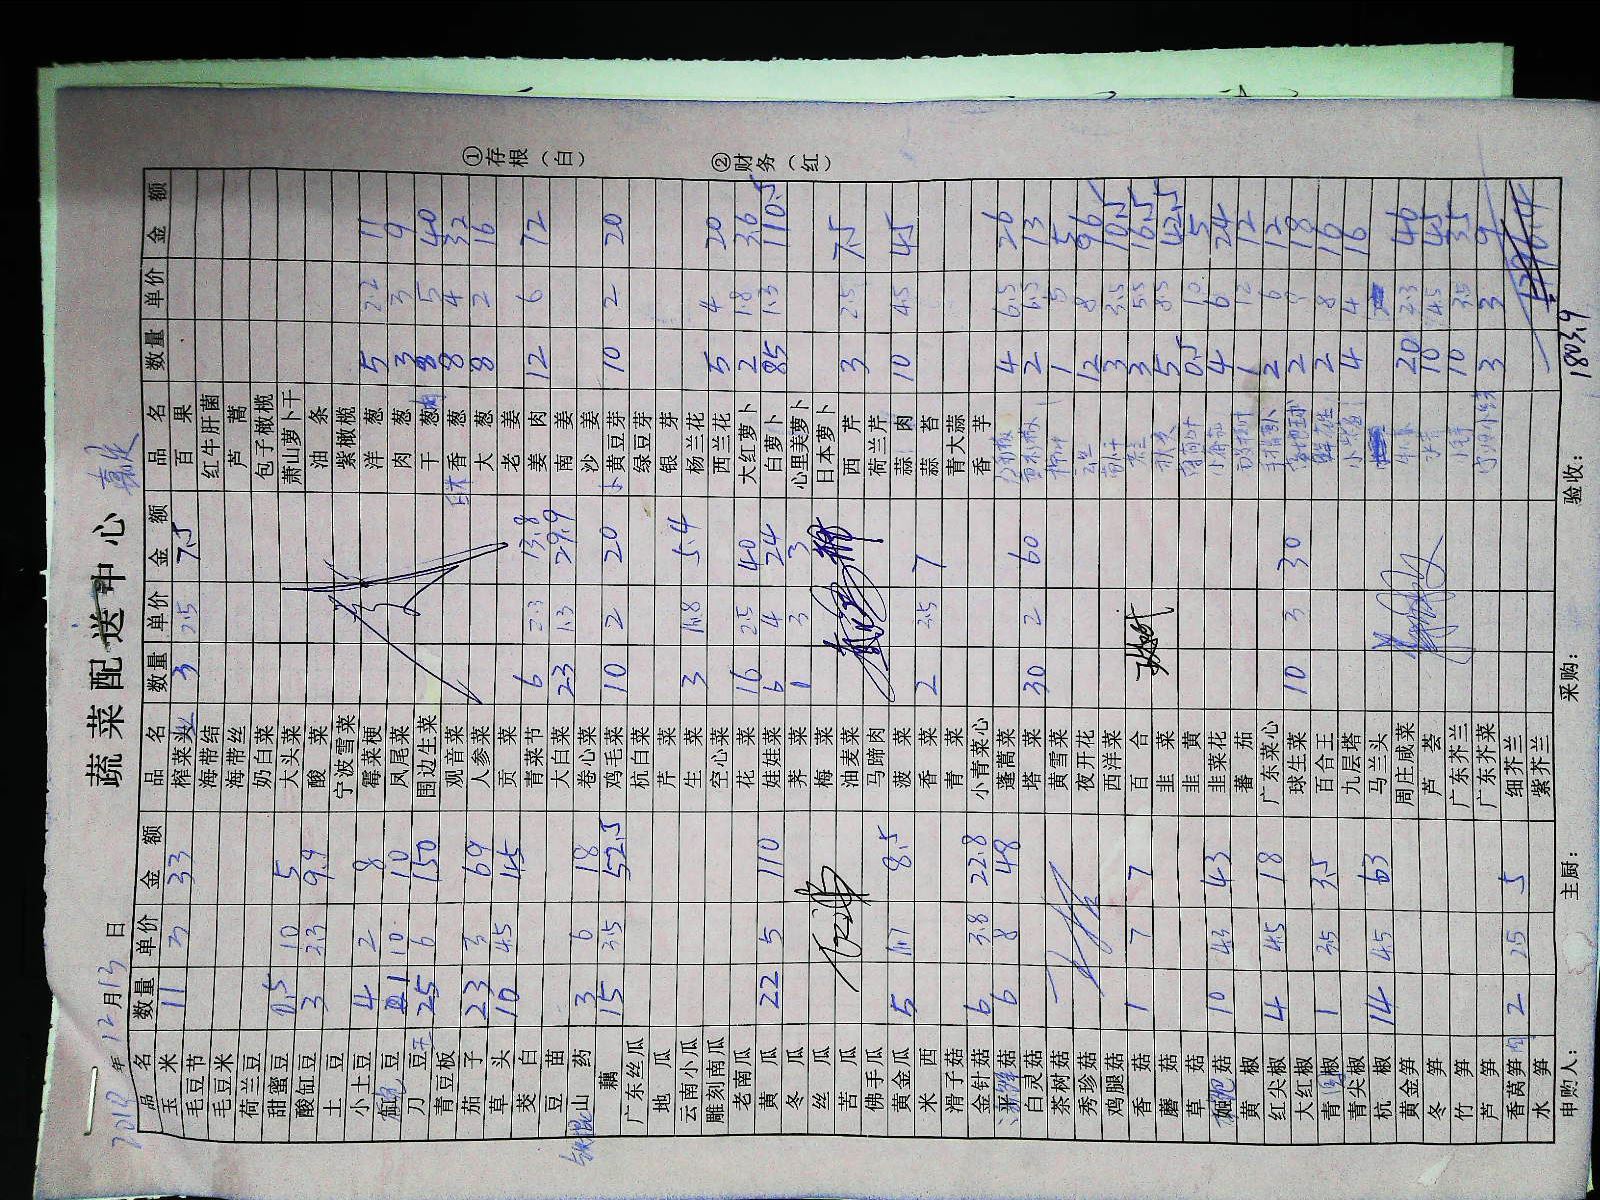 蔬菜配送中心
12月13日
①存根（白）
②财务（红）
品名 数量 单价 金额 品名 数量 单价 金额 品名 数量 单价 金额
玉米 11 3 33 榨菜头 3 2.5 7.5 百果
毛豆节 海带结 红牛肝菌
毛豆米 海带丝 芦蒿
荷兰豆 奶白菜 包子橄榄
甜蜜豆 0.5 10 5 大头菜 萧山萝卜干
酸缸豆 3 3.3 9.9 酸菜 油条
土豆 宁波雪菜 紫橄榄
小土豆 4 2 8 霉菜梗 洋葱 5 2.2 11
豆 1 10 10 凤尾菜 肉葱 3 3 9
刀豆 25 6 150 围边生菜 干葱 8 5 40
青豆板 观音菜 香葱 8 4 32
茄子 23 3 69 人参菜 大葱 8 2 16
草头 10 4.5 45 贡菜 老姜
茭白 青菜节 6 2.3 13.8 姜肉 12 6 72
豆苗 大白菜 23 1.3 29.9 南姜
山药 3 6 18 卷心菜 沙姜
藕 15 3.5 52.5 鸡毛菜 10 2 20 黄豆芽 10 2 20
广东丝瓜 杭白菜 绿豆芽
地瓜 芹菜 银芽
云南小瓜 生菜 3 1.8 5.4 杨兰花
雕刻南瓜 空心菜 西兰花 5 4 20
老南瓜 花菜 16 2.5 40 大红萝卜 2 1.8 3.6
黄瓜 22 5 110 娃娃菜 6 4 24 白萝卜 85 1.3 110.5
冬瓜 荠菜 1 3 3 心里美萝卜
丝瓜 梅菜 日本萝卜
苦瓜 油麦菜 西芹 3 2.5 7.5
佛手瓜 马蹄肉 荷兰芹
黄金瓜 5 1.7 8.5 菠菜 蒜肉 10 4.5 45
米西 香菜 2 3.5 7 蒜苔
滑子菇 青菜 青大蒜
金针菇 6 3.8 22.8 小青菜心 香芋
菇 6 8 48 蓬蒿菜 4 6.5 26
白灵菇 塔菜 30 2 60 2 6.5 13
茶树菇 黄雪菜 1 5 5
秀珍菇 夜开花 12 8 96
鸡腿菇 西洋菜 3 3.5 10.5
香菇 1 7 7 百合 3 5.5 16.5
蘑菇 韭菜 5 8.5 42.5
草菇 韭黄 0.5 10 5
菇 10 4.3 43 韭菜花 4 6 24
黄椒 蕃茄 1 12 12
红尖椒 4 4.5 18 广东菜心 2 6 12
大红椒 球生菜 10 3 30 2 9 18
青椒 1 3.5 3.5 百合王 2 8 16
青尖椒 九层塔 4 4 16
杭椒 14 4.5 63 马兰头
黄金笋 周庄咸菜 20 2.3 46
冬笋 芦荟 10 4.5 45
竹笋 广东芥兰 10 3.5 35
芦笋 广东芥菜 3 3 9
香莴笋 2 2.5 5 细芥兰
水笋 紫芥兰
申购人： 主厨： 采购： 验收： 1803.9